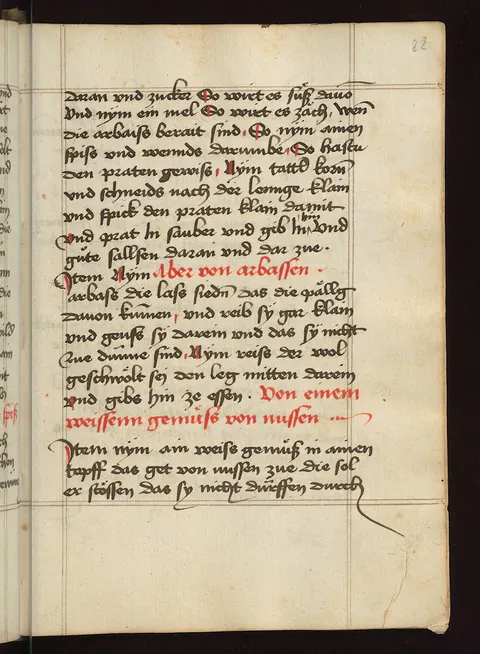 22
daran vnd zucker So wirt es süß davon
Vnd nym ein mel So wirt es zäch, wen
die arbaiss berait sind, So nym ainen
spiss vnd wennds darumbe, So hastu
den praten gewiss, Nym tattl korn
vnd schneids nach der lennge klain
vnd spick den praten klain damit
Vnd prat In sauber vnd gib In hin Vnd
güte sallsen daran vnd dar zue.
Item Nym Aber von arbassen.
arbass die lass siedn das die pällg
dauon kumen, vnd reib sy gar klain
vnd geuss sy darein vnd das sy nicht
zue dünne sind, Nym reiss der wol
geschwölt sei den leg mitten darein
vnd gibs hin ze essen. Von einem
weissenn gemüss von nussen
Item nym ain weiss gemüß in ainen
topff das get von nussen zue die sol
er stössen das sy nicht dürffen durch